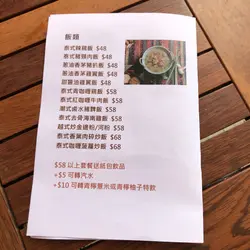 飯類
泰式辣雞飯 $48
泰式豬頸肉飯 $48
蔥油香茅豬扒飯 $48
蔥油香茅雞扒飯 $48
甜醬油雞翼飯 $48
泰式青咖喱雞飯 $58
泰式紅咖喱牛肉飯 $58
潮式鹵水豬髀飯 $58
泰式去骨海南雞飯 $58
越式炒金邊粉/河粉 $58
泰式香葉肉碎炒飯 $68
泰式咖喱菠蘿炒飯 $68
$58 以上套餐送紙包飲品
+$5 可轉汽水
+$10 可轉青檸薏米或青檸柚子特飲